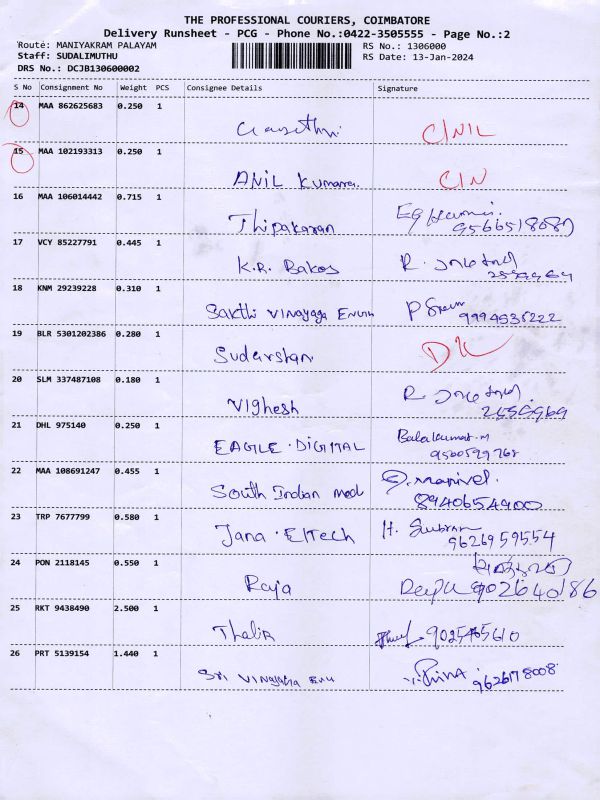 THE PROFESSIONAL COURIERS, COIMBATORE
Delivery Runsheet - PCG - Phone No.:0422-3505555 - Page No.:2
Route: MANIYAKRAM PALAYAM RS No.: 1306000
Staff: SUDALIMUTHU RS Date: 13-Jan-2024
DRS No.: DCJB130600002
S No Consignment No Weight PCS Consignee Details Signature
14 MAA 862625683 0.250 1
C/NIL
15 MAA 102193313 0.250 1
ANIL Kumar C/N
16 MAA 106014442 0.715 1
Thipakaran
17 VCY 85227791 0.445 1
K.R. Bakes R.
18 KNM 29239228 0.310 1
Sakthi Vinayaga 9994535222
19 BLR 5301202386 0.280 1
Sudarshan
20 SLM 337487108 0.180 1
Vighesh R.
21 DHL 975140 0.250 1
EAGLE.DIGITAL Balakumar.M
22 MAA 108691247 0.455 1
South Indian med 8940654900
23 TRP 7677799 0.580 1
Jana.Eltech H. 9626959554
24 PON 2118145 0.550 1
Raja
25 RKT 9438490 2.500 1
Thalir
26 PRT 5139154 1.440 1
Sri Vinayaga